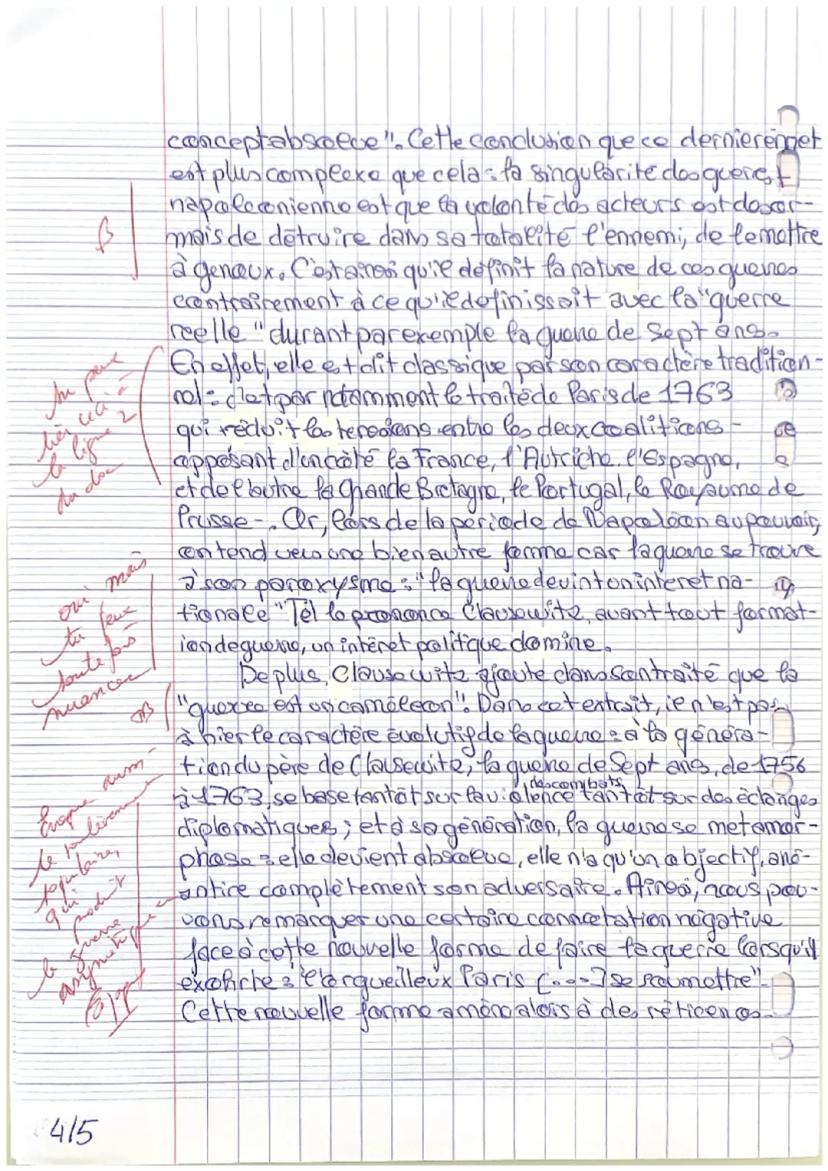 concept absolue". Cette conclusion que ce dernier émet
est plus complexe que cela : la singularité des guerres
napoléonienne est que la volonté des acteurs est désor-
mais de détruire dans sa totalité l'ennemi, de le mettre
à genoux. C'est ainsi qu'il définit la nature de ces guerres
contrairement à ce qu'il définissait avec la "guerre
réelle" durant par exemple la guerre de Sept ans.
En effet, elle est dit classique par son caractère tradition-
nel : clat par notamment le traité de Paris de 1763
qui réduit les tensions entre les deux coalitions -
opposant d'un côté la France, l'Autriche, l'Espagne,
et de l'autre la Grande Bretagne, le Portugal, le Royaume de
Prusse -. Or, lors de la période de Napoléon au pouvoir,
on tend vers une bien autre forme car la guerre se trouve
à son paroxysme : "la guerre devint on interet na-
tionale" Tel le prononce Clausewitz, avant tout format-
ion de guerre, un intérêt politique domine.
De plus, Clausewitz ajoute dans son traité que la
"guerre est un caméléon". Dans cet extrait, il n'est pas
à nier le caractère évolutif de la guerre : à la généra-
tion du père de Clausewitz, la guerre de Sept ans, de 1756
à 1763, se base tantôt sur la violence des combats tantôt sur des échanges
diplomatiques ; et à sa génération, la guerre se métamor-
phose : elle devient absolue, elle n'a qu'un objectif, ané-
antire complètement son adversaire. Ainsi, nous pou-
vons remarquer une certaine connotation négative
face à cette nouvelle forme de faire la guerre lorsqu'il
"l'orgueilleux Paris [...] se soumettre".
Cette nouvelle forme amène alors à des réticences
B
tu peux
lier ceci à
la ligne 2
du doc
oui mais
tu peux
toute fois
nuancer
TB
Evoque aussi
le soulèvement
populaire,
qui
produit
la guerre
asymétrique
4/5